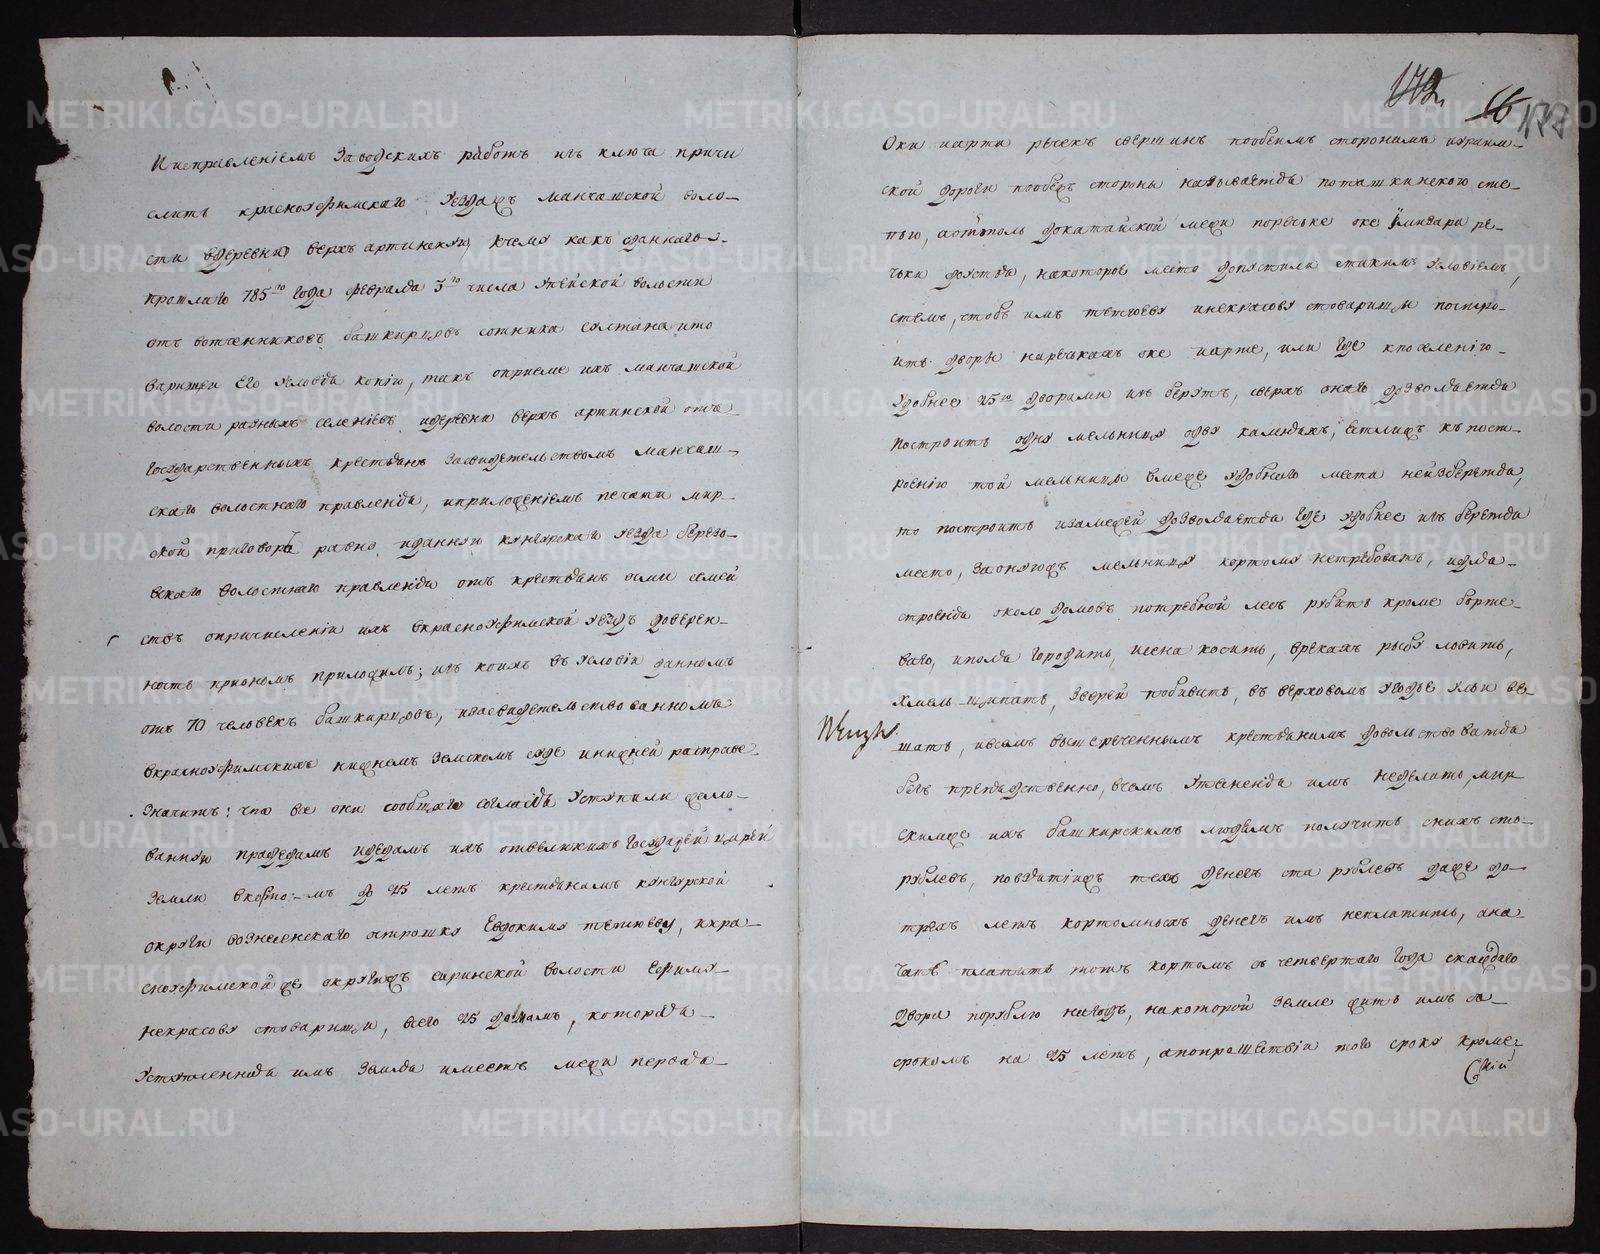 и исправленіемъ заводскихъ работъ изъ ключа причи
слить красноуфимскаго уездажъ манчашской воло-
сти вдеревню верхъ артинскую, кчему какъ данную в-
прошлаго 785го года февраля 3го числа упейской волости
отъ вотчинниковъ башкирцовъ сотника султана ито
варищей его условія копію, такъ оприеме ихъ манчашской
волости разныхъ селеніевъ идеревни верхъ артинской отъ
государственныхъ крестьянъ засвидетельствомъ манчаш-
скаго волостнаго правленія, иприложеніемъ печати мир-
ской приговоръ равно иданную кунгурскаго уезда березо-
вскаго волостнаго правленія отъ крестьянъ семей
ствъ опричисленіи ихъ вкрасноуфимской уездъ доверен-
ность приономъ приложилъ; изъ коихъ въ условіи данномъ
отъ 70 человекъ башкирцовъ, изасвидетельствованномъ
вкрасноуфимскихъ нижнемъ земскомъ суде инижней расправе
значитъ: что все они сообщаго согласія уступили жало-
ванную прадедамъ идедамъ ихъ отвеликихъ государей царей
земли вкортомъ на 25 летъ крестьянамъ кунгурской
округи вознесенскаго острошку Евдокиму тетюеву, икра-
сноуфимской же округижъ саринской волости Ефиму
некрасову стоварищи, всего 25 домамъ, которая
уступленная имъ земля имеетъ межи первая
172 16 177
Оки иарти речекъ свершинъ пообеимъ сторонамъ икрайм-
ской дороги пообеъ стороны называется поташкинскою сте-
пью, аоттоль докатайской межи поречьке оке имизара ре-
чьки доустья, накоторое место допустили стакимъ условіемъ,
стемъ, чтобъ имъ тетюеву инекрасову стоварищи построи-
ить дворы наречькахъ оке иарте, или где кпоселенію
удобнее 25ю дворами изъ берутъ, сверхъ онаго дозволяется
построить одну мельницу одву камняхъ, Естлижъ къ пост-
роенію той мельницы вмеже удобнаго места неизберется,
то построить изамежей дозволяется где удобнее изъ берется
место, заонуюжъ мельницу кортому нетребовать, идля
строенія около домовъ потребной лесъ рубить кроме борте-
ваго, иполя городить, исена косить, вреках рыбу ловить,
хмель щипать, зверей побивать, въ верховомъ угодье ульи ве-
шать, ивсемъ вышереченнымъ крестьянамъ довольствоватся
безъ препядственно, вчемъ утесненія имъ неделать, мир
скимже ихъ башкирскимъ людямъ получить снихъ сто-
рублевъ, повзятіижъ техъ денегъ ста рублевъ даже до
трехъ летъ кортомныхъ денегъ имъ неплатить, ана
чатъ платить тотъ кортомъ съ четвертаго года скаждаго
двора порублю нагодъ, накоторой земле жить имъ за
срокомъ на 25 летъ, апопрошествіи того сроку кроме